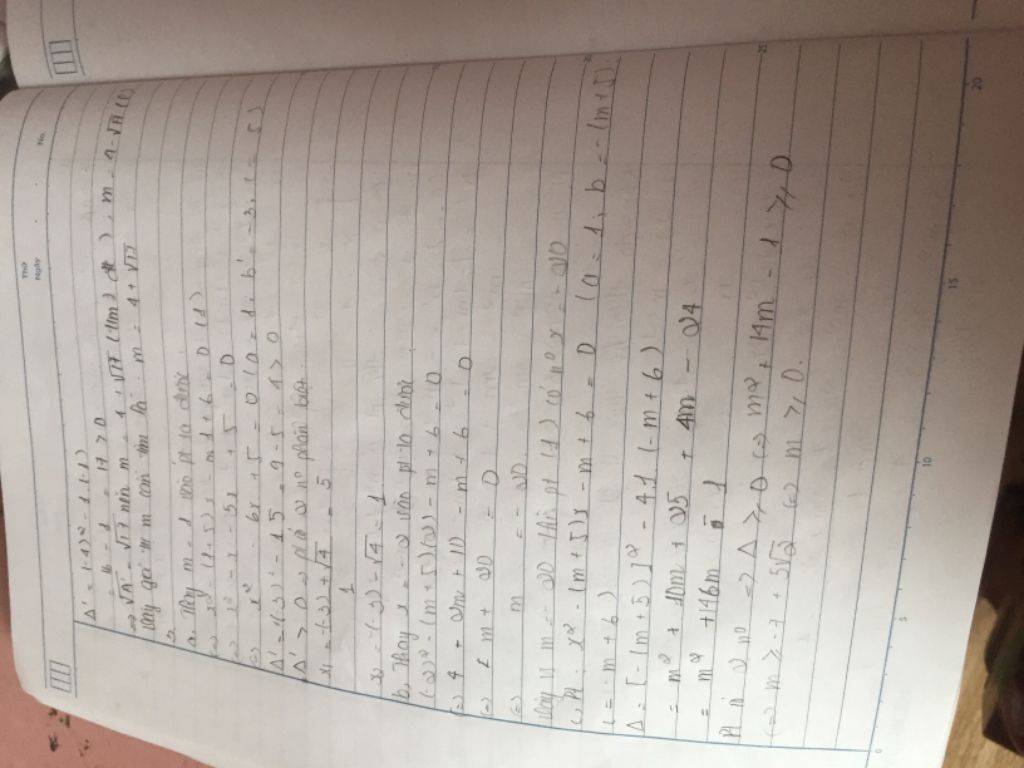 Thứ
Ngày
No.
Δ' = (-4)² - 1.(-1)
= 16 - 1 = 17 > 0
=> √Δ' = √17 nên m = 4 + √17 (tm) ; m = 4 - √17
Vậy giá trị m cần tìm là: m = 4 + √17
a. Thay m = 1 vào pt ta được
(=) x² (1+5)x 1 + 6 = 0 (1)
(=) x² - 5x + 5 = 0
(=) x² - 6x + 5 = 0 (a = 1, b' = -3, c = 5)
Δ' = (-3)² - 1.5 = 9 - 5 = 4 > 0
Δ' > 0 => pt có 2 n⁰ phân biệt
x₁ = -(-3) + √4 = 5
1
x₂ = -(-3) - √4 = 1
b. Thay x = -2 vào pt ta được.
(-2)² - (m + 5)(-2) - m + 6 = 0
(=) 4 + 2m + 10 - m + 6 = 0
(=) m + 20 = 0
(=) m = -20
Vậy m = -20 thì pt (1) có n⁰ x = -2
c, Pt: x² - (m + 5)x - m + 6 = 0 (a = 1, b = -(m+5);
c = -m + 6)
Δ = [-(m + 5)]² - 4.1(-m + 6)
= m² + 10m + 25 + 4m - 24
= m² + 14m - 1
Pt có 2 n⁰ => Δ ⩾ 0 (=) m² + 14m - 1 ⩾ 0
(=) m ⩾ -7 + 5√2 (=) m ⩾ 0.
0
5
10
15
20